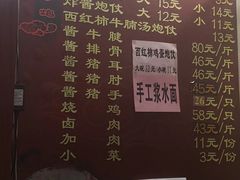 炸酱炮仗 大 15元
西红柿牛腩汤炮仗 大 12元
小
小
酱牛腱 80元/斤
酱排骨 元/斤
酱猪耳 58元/斤
酱猪肘 45元/斤
酱猪手 元/只
烧鸡 58元/只
卤肉 43元/斤
加肉 11元/份
小菜 3元/份
西红柿鸡蛋炮仗
大碗 元 小碗 元
手工浆水面